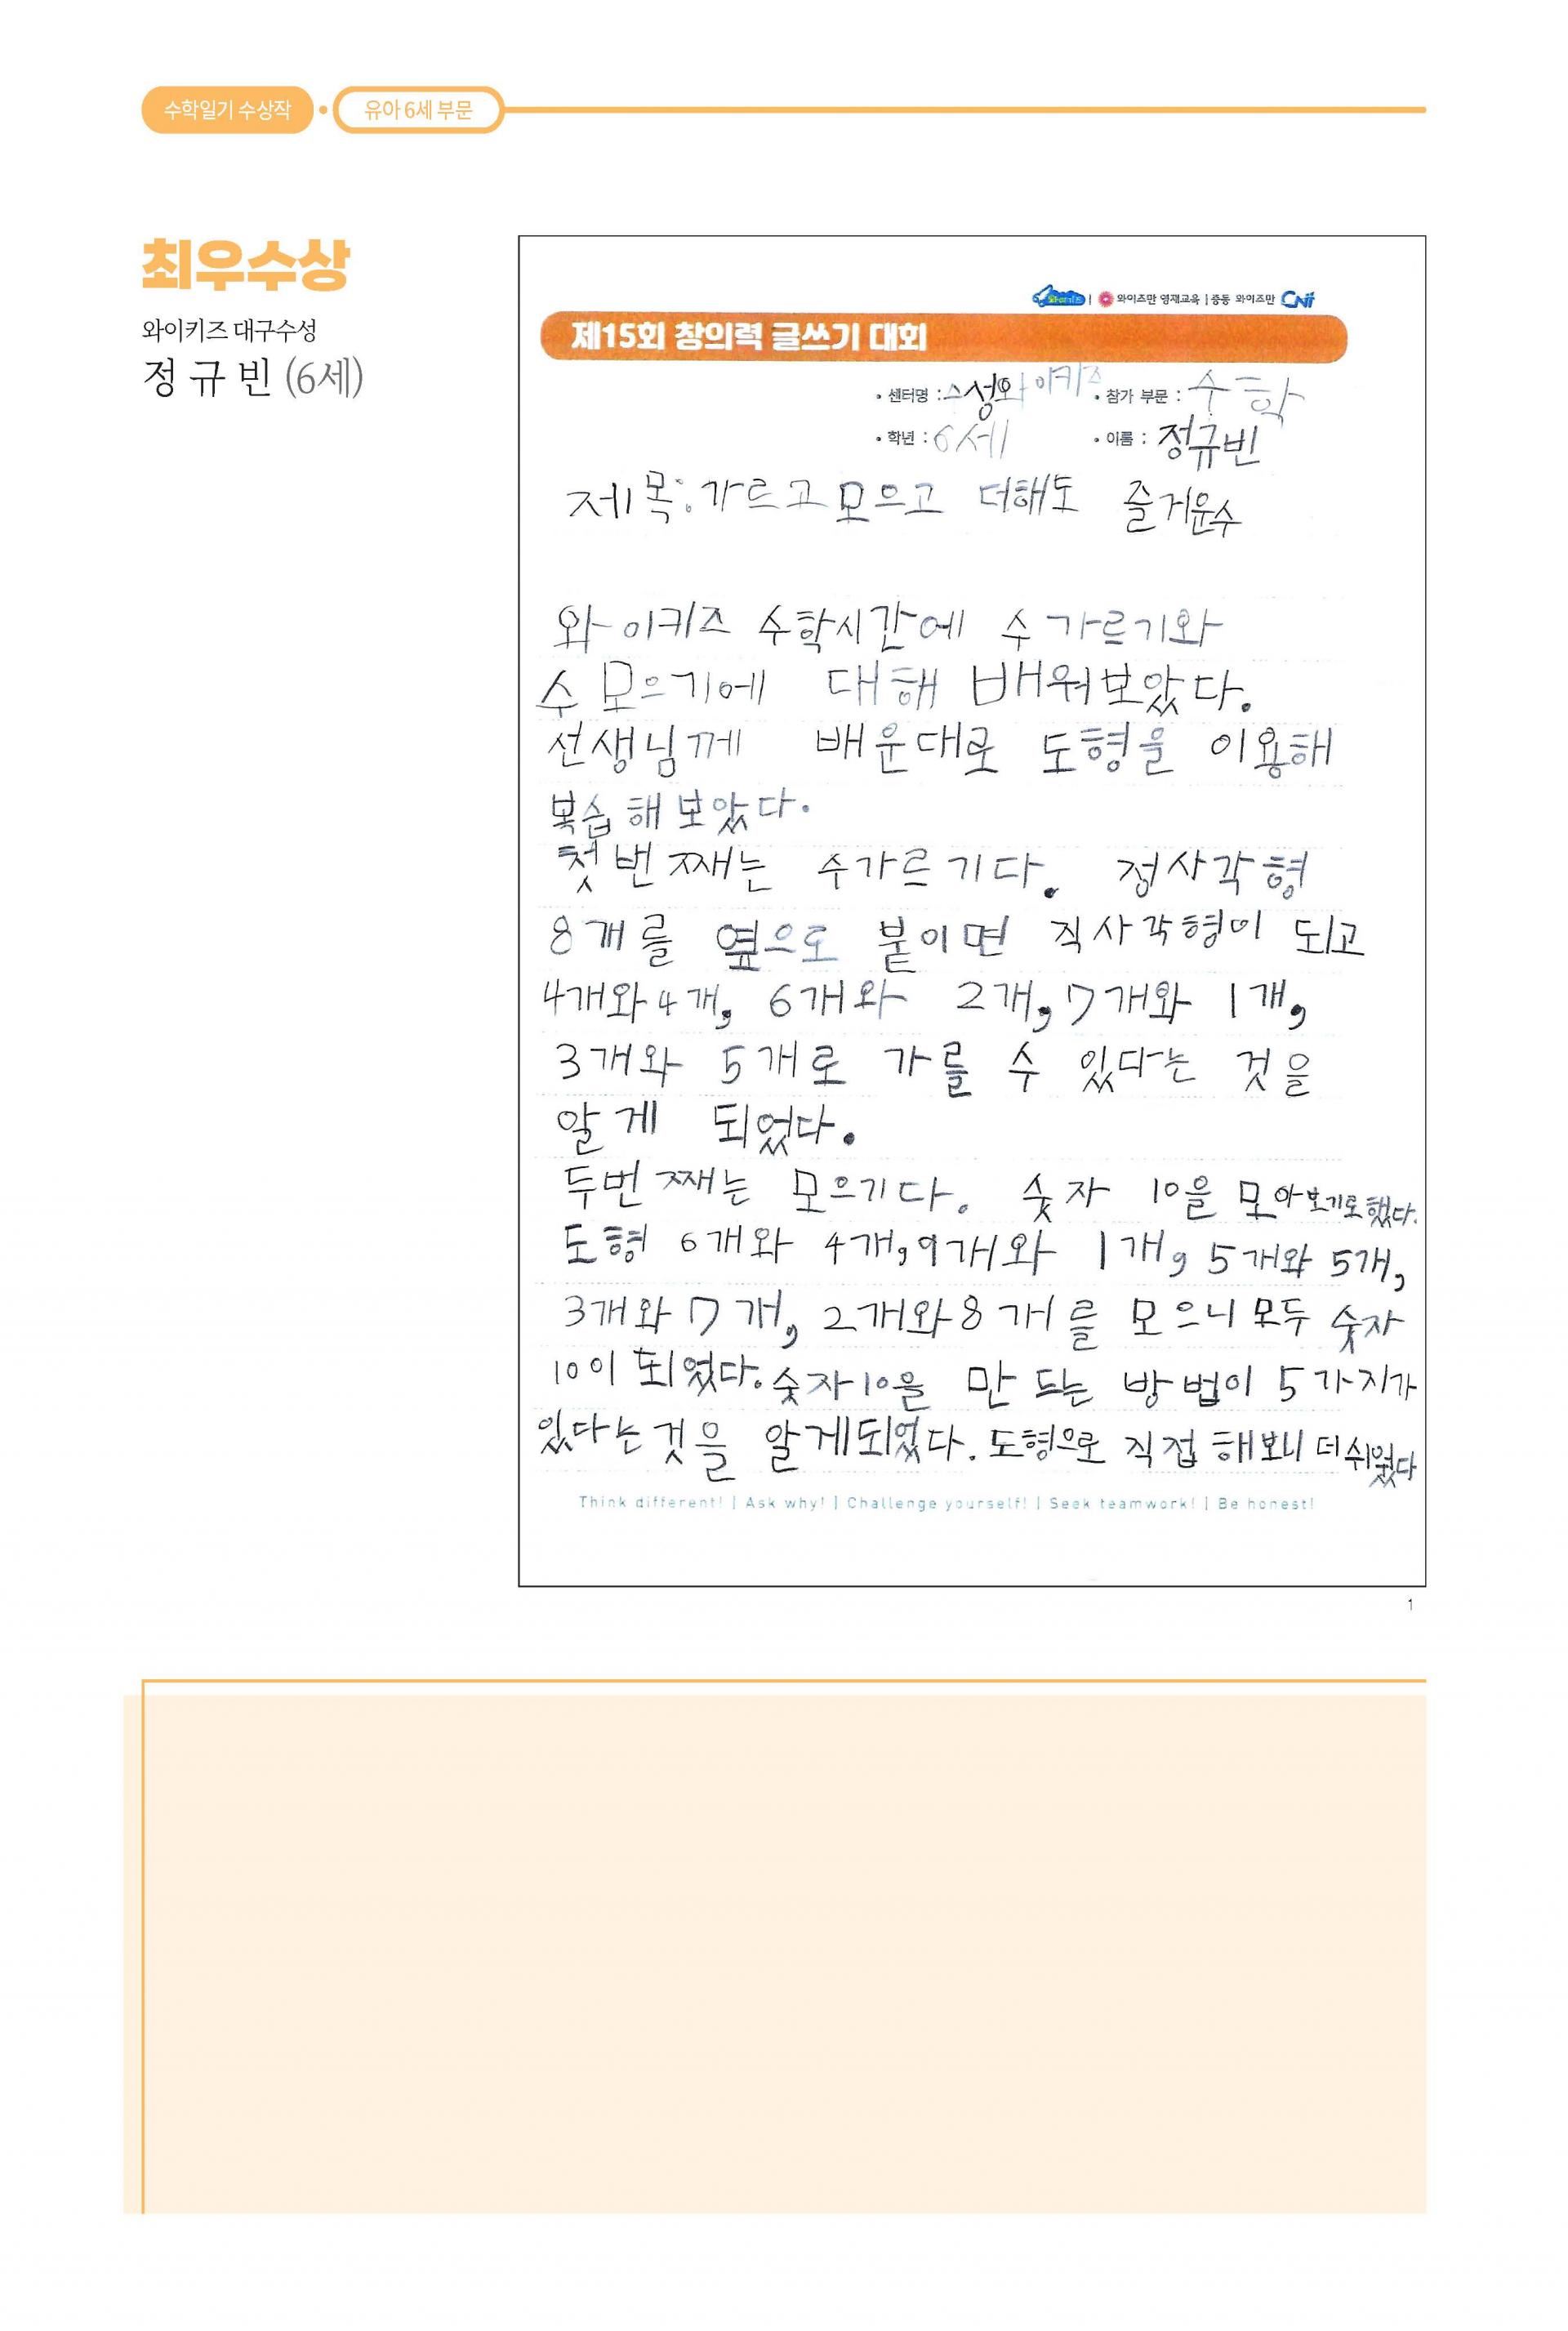 수학일기 수상작 • 유아 6세 부문
최우수상
와이키즈 대구수성
정규빈 (6세)
와이키즈 | 와이즈만 영재교육 | 중등 와이즈만 CNI
제15회 창의력 글쓰기 대회
• 센터명 : 수성와이키즈 • 참가 부문 : 수학
• 학년 : 6세 • 이름 : 정규빈
제목: 가르고 모으고 더해도 즐거운수
와이키즈 수학시간에 수 가르기와
수 모으기에 대해 배워보았다.
선생님께 배운대로 도형을 이용해
복습해보았다.
첫번째는 수가르기다. 정사각형
8개를 옆으로 붙이면 직사각형이 되고
4개와 4개, 6개와 2개, 7개와 1개,
3개와 5개로 가를 수 있다는 것을
알게 되었다.
두번째는 모으기다. 숫자 10을 모아보기로했다.
도형 6개와 4개, 9개와 1개, 5개와 5개,
3개와 7개, 2개와 8개를 모으니 모두 숫자
10이 되었다. 숫자10을 만드는 방법이 5가지가
있다는것을 알게되었다. 도형으로 직접 해보니 더 쉬웠다
Think different! | Ask why! | Challenge yourself! | Seek teamwork! | Be honest!
1